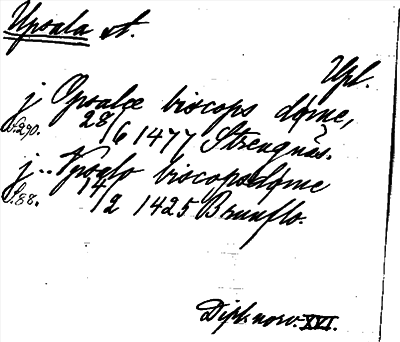 Upsala st.
Upl.
j Opsalæ biscops døme,
S.290. 28/6 1477 Strengnäs.
j .. Vpsalo biscopsdøme
S.88. 14/2 1425 Brunflo.
Dipl. norv. XVI.